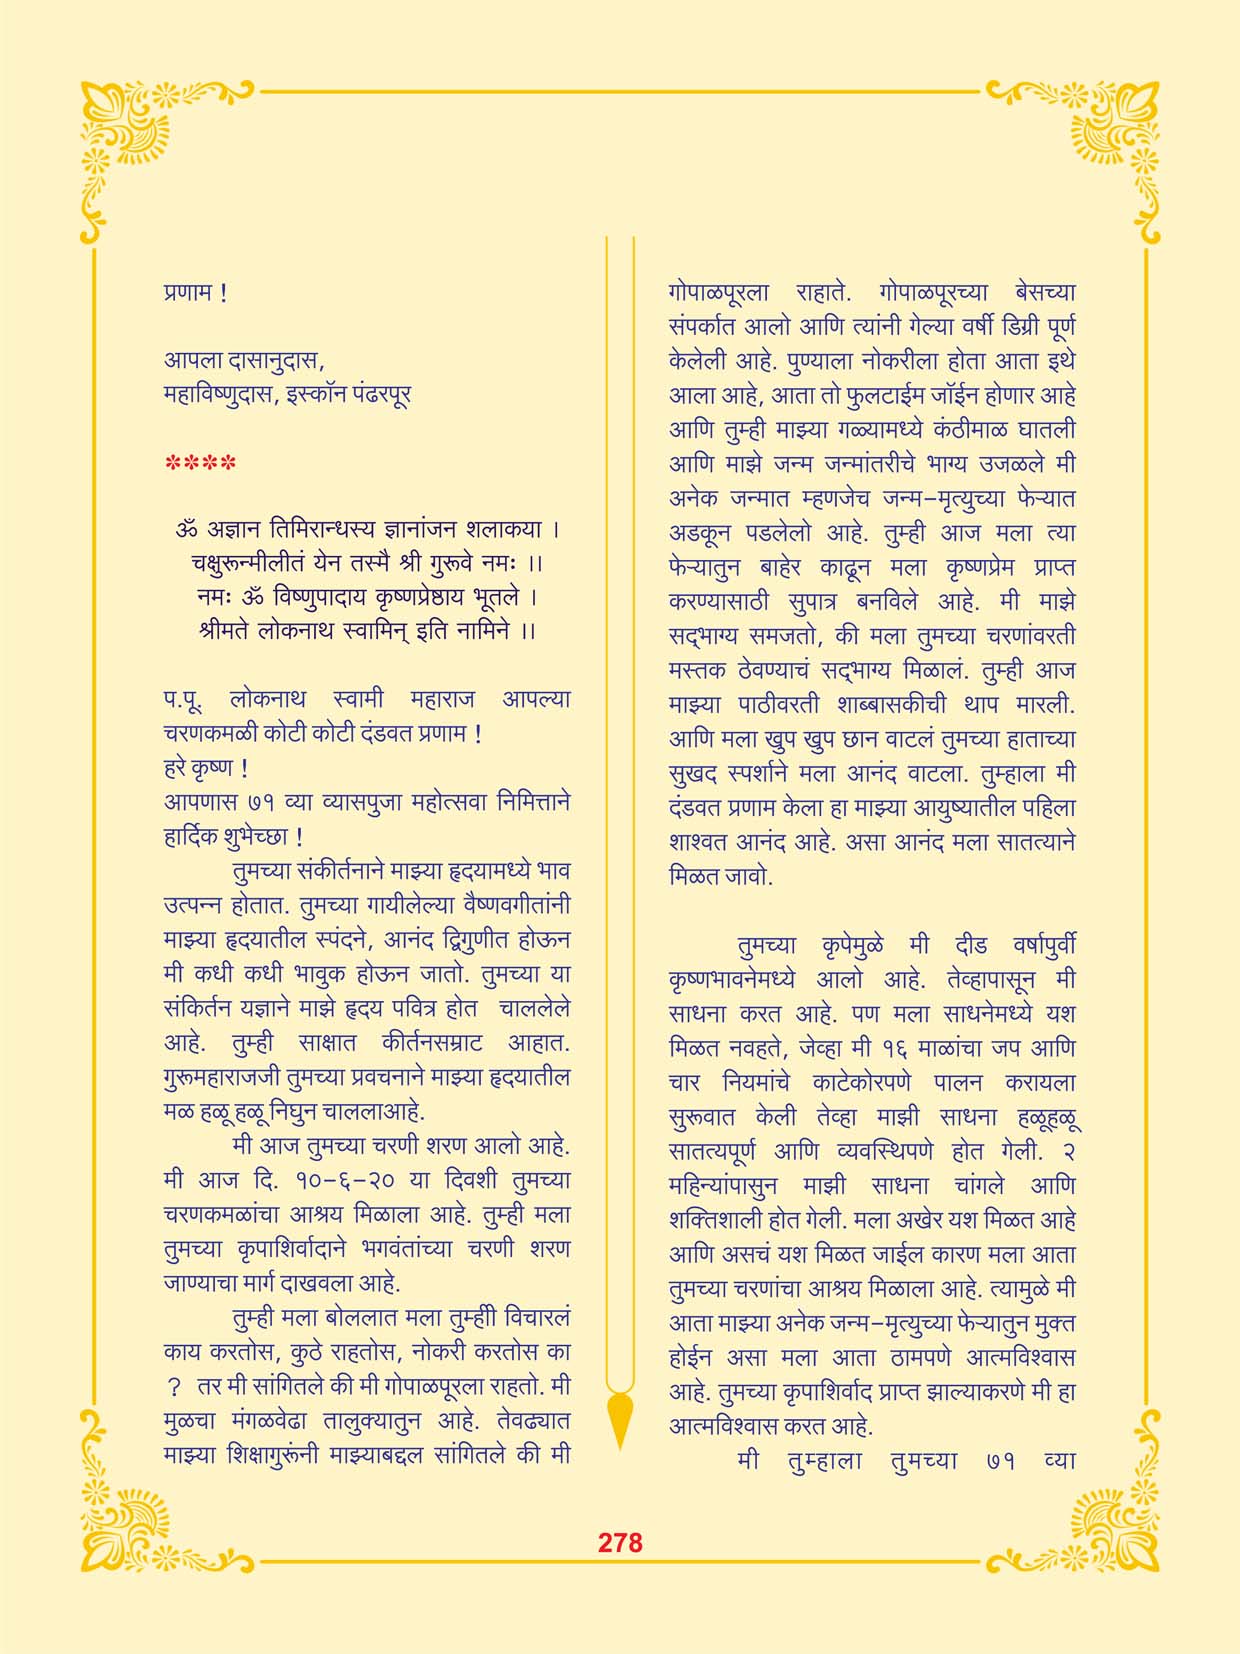 प्रणाम !
आपला दासानुदास,
महाविष्णुदास, इस्कॉन पंढरपूर
****
ॐ अज्ञान तिमिरान्धस्य ज्ञानांजन शलाकया ।
चक्षुरून्मीलीतं येन तस्मै श्री गुरूवे नमः ।।
नमः ॐ विष्णुपादाय कृष्णप्रेष्ठाय भूतले ।
श्रीमते लोकनाथ स्वामिन् इति नामिने ।।
प.पू. लोकनाथ स्वामी महाराज आपल्या
चरणकमळी कोटी कोटी दंडवत प्रणाम !
हरे कृष्ण !
आपणास ७१ व्या व्यासपुजा महोत्सवा निमित्ताने
हार्दिक शुभेच्छा !
तुमच्या संकीर्तनाने माझ्या हृदयामध्ये भाव
उत्पन्न होतात. तुमच्या गायीलेल्या वैष्णवगीतांनी
माझ्या हृदयातील स्पंदने, आनंद द्विगुणीत होऊन
मी कधी कधी भावुक होऊन जातो. तुमच्या या
संकिर्तन यज्ञाने माझे हृदय पवित्र होत चाललेले
आहे. तुम्ही साक्षात कीर्तनसम्राट आहात.
गुरूमहाराजजी तुमच्या प्रवचनाने माझ्या हृदयातील
मळ हळू हळू निघुन चाललाआहे.
मी आज तुमच्या चरणी शरण आलो आहे.
मी आज दि. १०-६-२० या दिवशी तुमच्या
चरणकमळांचा आश्रय मिळाला आहे. तुम्ही मला
तुमच्या कृपाशिर्वादाने भगवंतांच्या चरणी शरण
जाण्याचा मार्ग दाखवला आहे.
तुम्ही मला बोललात मला तुम्हीी विचारलं
काय करतोस, कुठे राहतोस, नोकरी करतोस का
? तर मी सांगितले की मी गोपाळपूरला राहतो. मी
मुळचा मंगळवेढा तालुक्यातुन आहे. तेवढ्यात
माझ्या शिक्षागुरूंनी माझ्याबद्दल सांगितले की मी
गोपाळपूरला राहाते. गोपाळपूरच्या बेसच्या
संपर्कात आलो आणि त्यांनी गेल्या वर्षी डिग्री पूर्ण
केलेली आहे. पुण्याला नोकरीला होता आता इथे
आला आहे, आता तो फुलटाईम जॉईन होणार आहे
आणि तुम्ही माझ्या गळ्यामध्ये कंठीमाळ घातली
आणि माझे जन्म जन्मांतरीचे भाग्य उजळले मी
अनेक जन्मात म्हणजेच जन्म-मृत्युच्या फेऱ्यात
अडकून पडलेलो आहे. तुम्ही आज मला त्या
फेऱ्यातुन बाहेर काढून मला कृष्णप्रेम प्राप्त
करण्यासाठी सुपात्र बनविले आहे. मी माझे
सद्‌भाग्य समजतो, की मला तुमच्या चरणांवरती
मस्तक ठेवण्याचं सद्‌भाग्य मिळालं. तुम्ही आज
माझ्या पाठीवरती शाब्बासकीची थाप मारली.
आणि मला खुप खुप छान वाटलं तुमच्या हाताच्या
सुखद स्पर्शाने मला आनंद वाटला. तुम्हाला मी
दंडवत प्रणाम केला हा माझ्या आयुष्यातील पहिला
शाश्वत आनंद आहे. असा आनंद मला सातत्याने
मिळत जावो.
तुमच्या कृपेमुळे मी दीड वर्षापुर्वी
कृष्णभावनेमध्ये आलो आहे. तेव्हापासून मी
साधना करत आहे. पण मला साधनेमध्ये यश
मिळत नवहते, जेव्हा मी १६ माळांचा जप आणि
चार नियमांचे काटेकोरपणे पालन करायला
सुरूवात केली तेव्हा माझी साधना हळूहळू
सातत्यपूर्ण आणि व्यवस्थिपणे होत गेली. २
महिन्यांपासुन माझी साधना चांगले आणि
शक्तिशाली होत गेली. मला अखेर यश मिळत आहे
आणि असचं यश मिळत जाईल कारण मला आता
तुमच्या चरणांचा आश्रय मिळाला आहे. त्यामुळे मी
आता माझ्या अनेक जन्म-मृत्युच्या फेऱ्यातुन मुक्त
होईन असा मला आता ठामपणे आत्मविश्वास
आहे. तुमच्या कृपाशिर्वाद प्राप्त झाल्याकरणे मी हा
आत्मविश्वास करत आहे.
मी तुम्हाला तुमच्या ७१ व्या
278